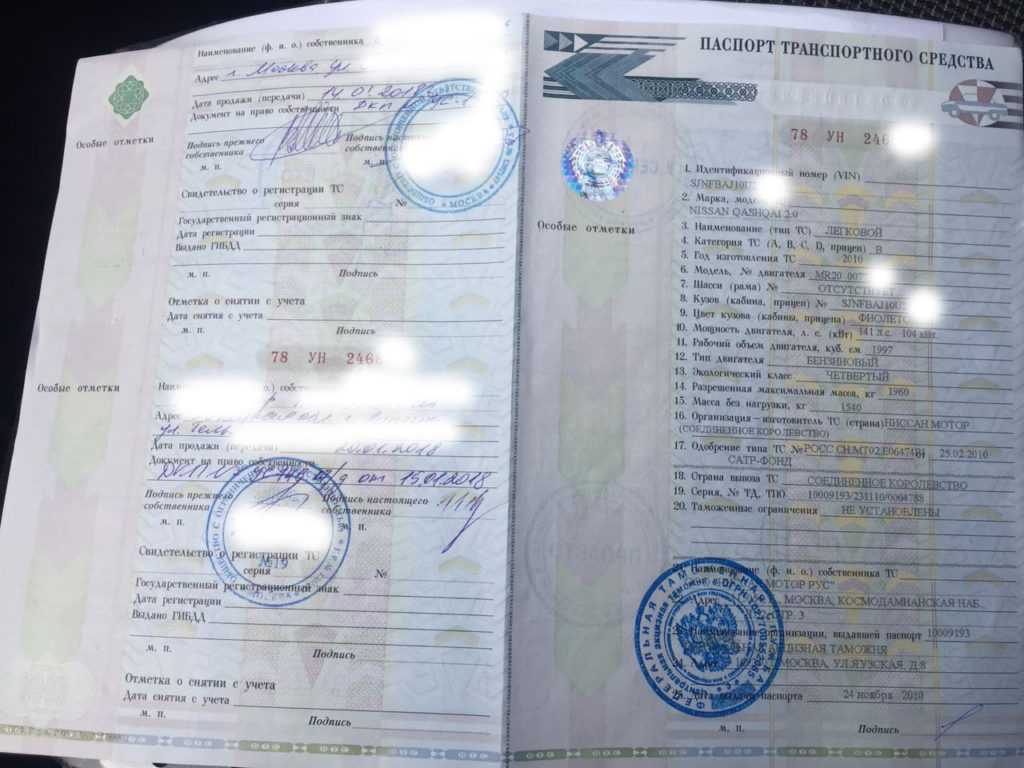 Наименование (ф. и. о.) собственника
Адрес г. Москва ул
Дата продажи (передачи) 14 01 2018
Документ на право собственности ДКП
Подпись прежнего собственника
Подпись настоящего собственника
м. п.
Свидетельство о регистрации ТС
серия №
Государственный регистрационный знак
Дата регистрации
Выдано ГИБДД
м. п. Подпись
Отметка о снятии с учета
Дата снятия с учета
м. п. Подпись
Особые отметки
78 УН 246
Адрес
ул.
Дата продажи
Документ на право собственности
от 15.01.2018
Подпись прежнего собственника
Подпись настоящего собственника
м. п.
№19
Свидетельство о регистрации ТС
серия №
Государственный регистрационный знак
Дата регистрации
Выдано ГИБДД
м. п.
Подпись
Отметка о снятии с учета
Дата снятия с учета
м. п.
Подпись
Особые отметки
МОСКВА
ПАСПОРТ ТРАНСПОРТНОГО СРЕДСТВА
78 УН 246
Особые отметки
1. Идентификационный номер (VIN)
SJNFBAJ10U
2. Марка,
NISSAN QASHQAI 2.0
3. Наименование (тип ТС) ЛЕГКОВОЙ
4. Категория ТС (A, B, C, D, прицеп) B
5. Год изготовления ТС 2010
6. Модель, № двигателя MR20
7. Шасси (рама) № ОТСУТСТВУЕТ
8. Кузов (кабина, прицеп) № SJNFBAJ10U
9. Цвет кузова (кабины, прицепа) ФИОЛЕТО
10. Мощность двигателя, л. с. (кВт) 141 л.с. 104 кВт
11. Рабочий объем двигателя, куб. см 1997
12. Тип двигателя БЕНЗИНОВЫЙ
13. Экологический класс ЧЕТВЕРТЫЙ
14. Разрешенная максимальная масса, кг 1960
15. Масса без нагрузки, кг 1540
16. Организация-изготовитель ТС (страна) НИССАН МОТОР
(СОЕДИНЕННОЕ КОРОЛЕВСТВО)
17. Одобрение типа ТС № от 25.02.2010
САТР-ФОНД
18. Страна вывоза ТС СОЕДИНЕННОЕ КОРОЛЕВСТВО
19. Серия, № ТД, ТПО 10009193/231110/0064788
20. Таможенные ограничения НЕ УСТАНОВЛЕНЫ
(ф. и. о.) собственника ТС
МОТОР РУС"
МОСКВА, КОСМОДАМИАНСКАЯ НАБ
организации, выдавшей паспорт 10009193
ТАМОЖНЯ
МОСКВА, УЛ.ЯУЗСКАЯ, Д.8
паспорта 24 ноября 2010
м. п. Подпись